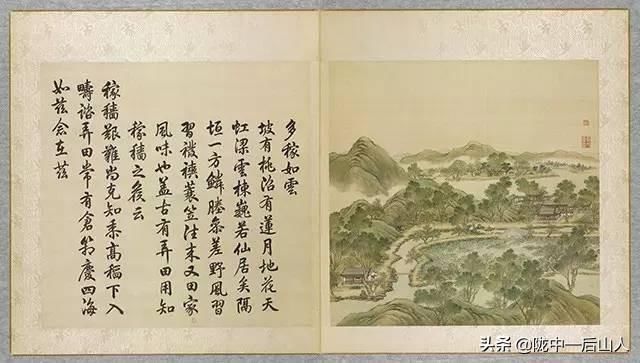 多稼如雲
坡有桃沼有蓮月地花天
虹梁雲棟巍若仙居矣隔
垣一方鱗塍參差野風習
習襏襫蓑笠往來又田家
風味也蓋古有弄田用知
稼穡之候云
稼穡艱難尚克知黍高稻下入
疇諮弄田常有倉箱慶四海
如茲念在茲
头条 @陇中一后山人